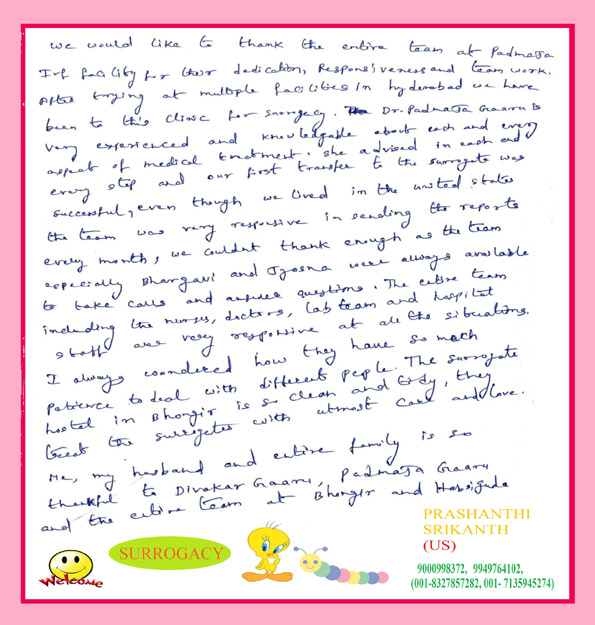 We would like to thank the entire team at Padmaja
Ivf facility for their dedication, Responsiveness and team work.
After trying at multiple facilities in hyderabad we have
been to this clinic for surrogacy. Dr. Padmaja Gaaru is
very experienced and knowledgable about each and every
aspect of medical treatment. She advised in each and
every step and our first transfer to the surrogate was
successful, even though we lived in the united states
the team was very responsive in sending the reports
every month, we couldn't thank enough as the team
especially Bhargavi and Jyosna were always available
to take calls and answer questions. The entire team
including the nurses, doctors, lab team and hospital
staff are very responsive at all the situations.
I always woondered how they have so much
patience to deal with different people. The surrogate
hostel in Bhongir is so clean and tidy, they
treat the surrogates with utmost care and love.
Me, my husband and entire family is so
thankful to Divakar Gaaru, Padmaja Gaaru
and the entire team at Bhongir and Habsigude
PRASHANTHI
SRIKANTH
(US)
SURROGACY
Welcome
9000998372, 9949764102,
(001-8327857282, 001- 7135945274)